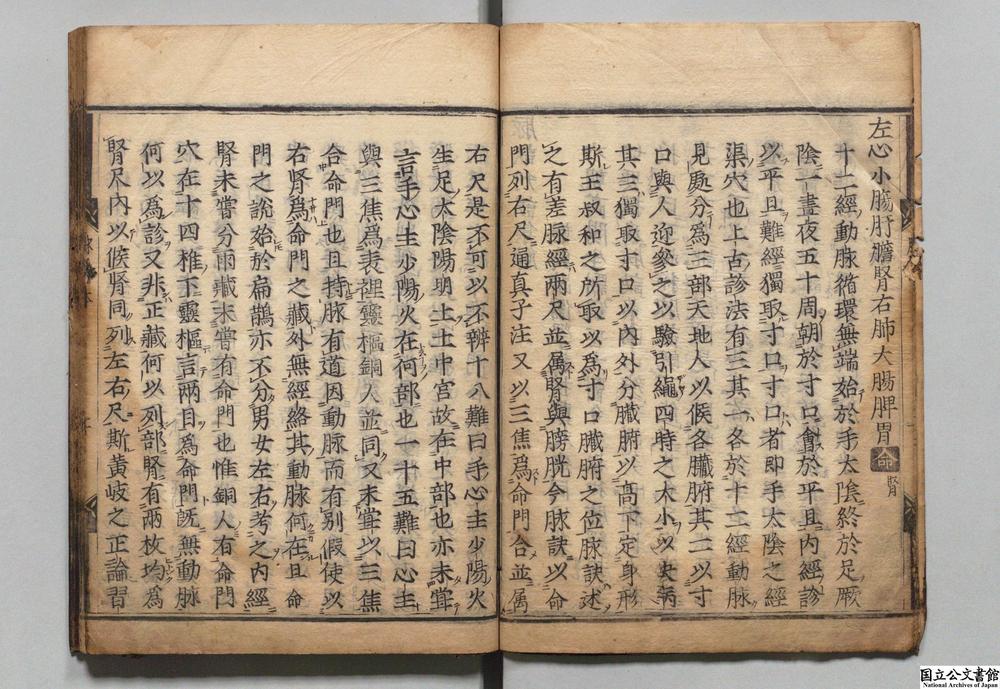 左心小腸肝膽腎右肺大腸脾胃命腎
十二經動脉循環無端始於手太陰終於足厥
陰一晝夜五十周朝於寸口會於平旦内經診
以平旦難經獨取寸口寸口者即手太陰之經
渠穴也上古診法有三其一各於十二經動脉
見處分爲三部天地人以候各臟腑其二以寸
口與人迎參之以驗引繩四時之大小以史病
其三獨取寸口以内外分臟腑以高下定身形
斯王叔和之所取以爲寸口臟腑之位脉訣述
之有差脉經兩尺並属腎與膀胱今脉訣以命
門列右尺通真子注又以三焦爲命門合並属
右尺是不可以不辨十八難曰手心主少陽火
生足太陰陽明土土中宮故在中部也亦未甞
言手心主少陽火在何部也一十五難曰心主
與三焦爲表裡靈樞銅人並同又未甞以三焦
合命門也且持脉有道因動脉而有别假使以
右腎爲命門之藏外無經絡其動脉何在且命
門之說始於扁鵲亦不分男女左右考之内經
腎未嘗分兩藏未嘗有命門也惟銅人有命門
穴在十四椎下靈樞言兩目爲命門既無動脉
何以爲診又非正藏何以列部腎有兩枚均爲
腎尺内以候腎同列左右尺斯黄岐之正論習
国立公文書館
National Archives of Japan